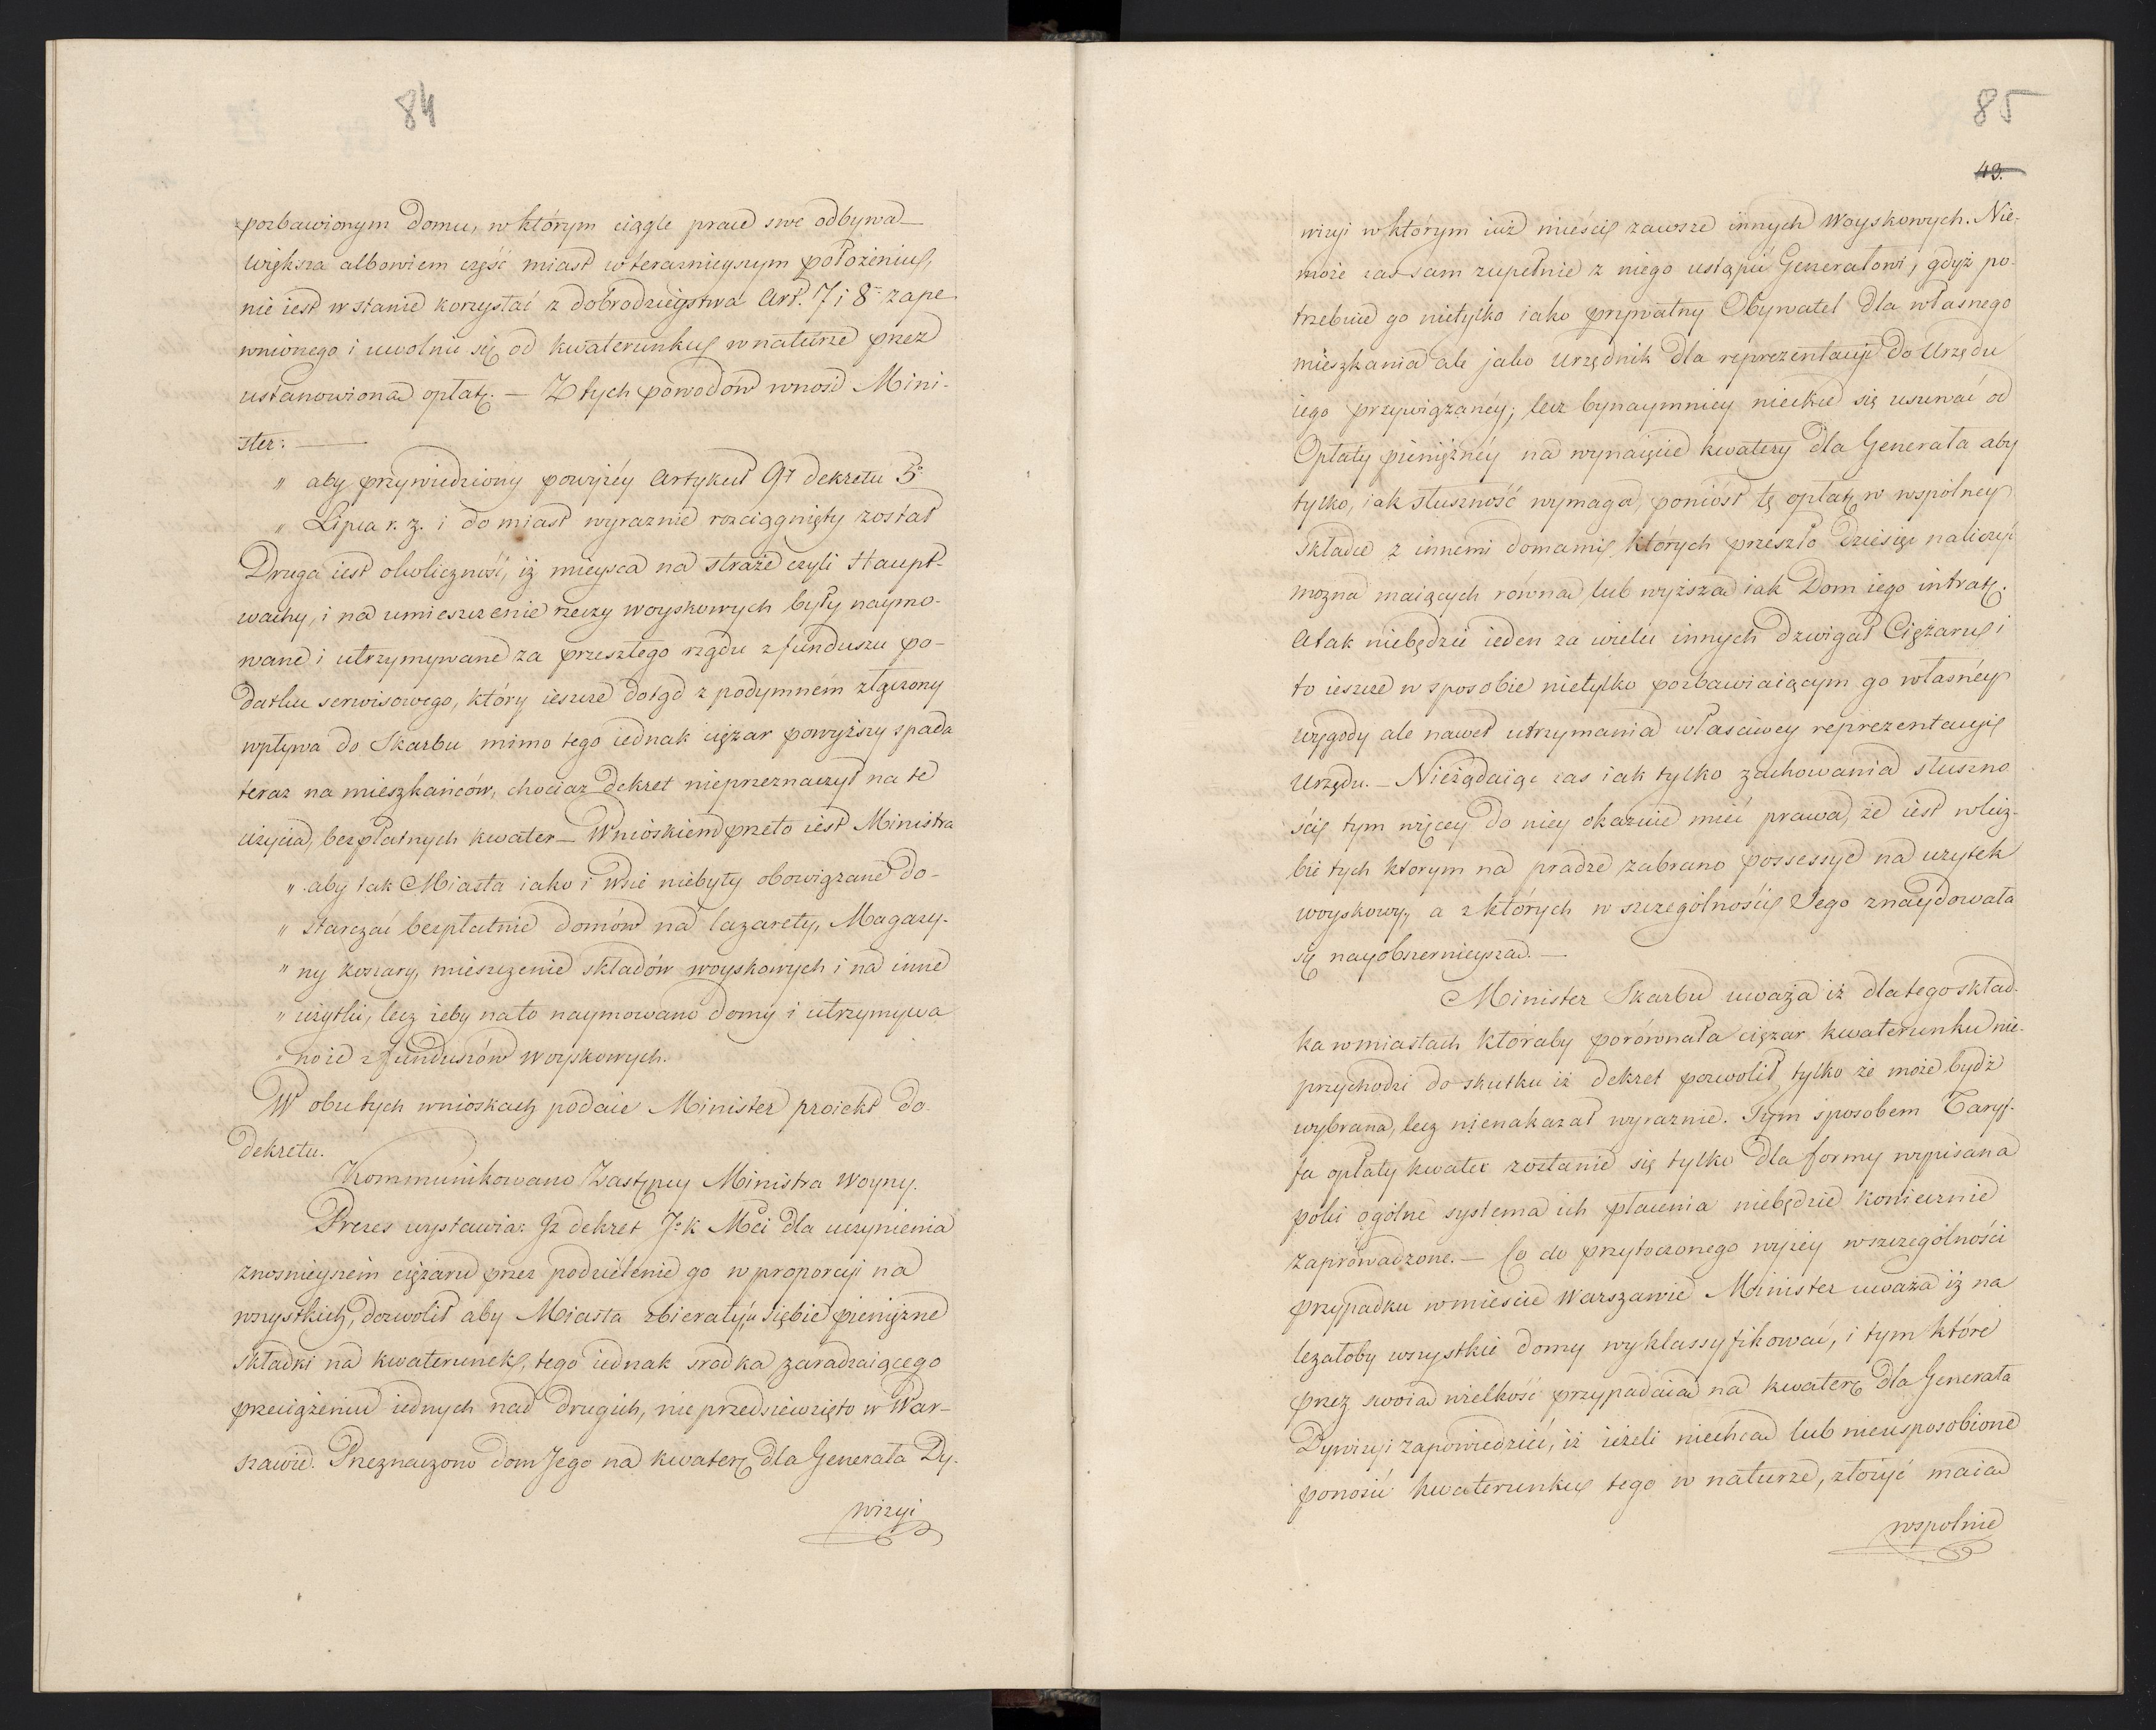 84
pozbawionym domu, w którym ciągle prace swe odbywa_
większa albowiem część miast w teraznieyszym położeniu,
nie iest w stanie korzystać z dobrodzieystwa Art. 7 i 8. zape
wnionego i uwolnić się od kwaterunku w naturze przez
ustanowioną opłatę. — Z tych powodów wnosi Mini-
ster: —
" aby przywiedziony powyżéy Artykuł 9ty dekretu 5o
" Lipca r. z. i do miast wyraznie rozciągnięty został
Druga iest okoliczność, iż mieysca na straże czyli Haupt-
wachy, i na umieszczenie rzeczy woyskowych były naymo-
wane i utrzymywane za przeszłego rządu z funduszu po-
datku serwisowego, który ieszcze dotąd z podymném złączony
wpływa do Skarbu mimo tego iednak ciężar powyższy spada
teraz na mieszkańców, chociaz dekret nieprzeznaczył na te
użycia, bezpłatnych kwater — Wnioskiem przeto iest Ministra
" aby tak Miasta iako i Wsie niebyły obowiązane do-
" starczać bezpłatnie domów na lazarety, Magazy-
" ny koszary, mieszczenie składów woyskowych i na inne
" użytki, lecz żeby na to naymowano domy i utrzymywa
" no ie z funduszów woyskowych.
W obu tych wnioskach podaie Minister proiekt do
dekretu.
Kommunikowano Zastępcy Ministra Woyny.
Prezes wystawia: Iż dekret J. K. Mci dla uczynienia
znosnieyszém ciężaru przez podzielenie go w proporcyi na
wszystkich, dozwolił aby Miasta zbierały u siebie pieniężne
składki na kwaterunek, tego iednak srodka zaradzaiącego
przeciążeniu iednych nad drugich, nie przedsiewzięto w War-
szawie. Przeznaczono dom Jego na kwaterę dla Generała Dy-
wizyi
85
43.
wizyi w którym iuż mieści zawsze innych Woyskowych. Nie-
może zas sam zupełnie z niego ustąpić Generałowi, gdyż po-
trzebuie go nietylko iako prywatny Obywatel dla własnego
mieszkania ale jako Urzędnik dla reprezentacyi do Urzędu
iego przywiązanéy; lecz bynaymniey niechce się usuwać od
Opłaty pieniężnéy na wynaięcie kwatery dla Generała aby
tylko, iak słuszność wymaga, poniósł tę opłatę w wspólney
składce z innemi domami, których przeszło dziesięć naliczyć
mozna maiących równą lub wyższą iak Dom iego intratę.
A tak niebędzie ieden za wielu innych dzwigał Ciężaru i
to ieszcze w sposobie nietylko pozbawiaiącym go własnéy
wygody ale nawet utrzymania własciwey reprezentacyi
Urzędu. — Nieżądaiąc zas iak tylko zachowania słuszno
ści tym więcey do niey okazuie mieć prawa, że iest w licz-
bie tych ktorym na Pradze zabrano possessye na uzytek
woyskowy, a z których w szczególności Jego znaydowała
się nayobszernieyszą. —
Minister Skarbu uważa iż dlatego skład-
ka w miastach któraby porównała ciężar kwaterunku nie-
przychodzi do skutku iż dekret pozwolił tylko że może bydź
wybrana, lecz nienakazał wyraznie. Tym sposobem Taryf-
fa opłaty kwater zostanie się tylko dla formy wypisana
poki ogólne systema ich płacenia niebędzie koniecznie
zaprowadzone. — Co do przytoczonego wyżey w szczególności
przypadku w mieście Warszawie Minister uważa iż na
leżałoby wszystkie domy wyklassyfikować, i tym które
przez swoią wielkość przypadaią na kwaterę dla Generała
Dywizyi zapowiedzieć, iż ieżeli niechcą lub nieusposobione
ponosić kwaterunku tego w naturze, złożyć maią
wspolnie